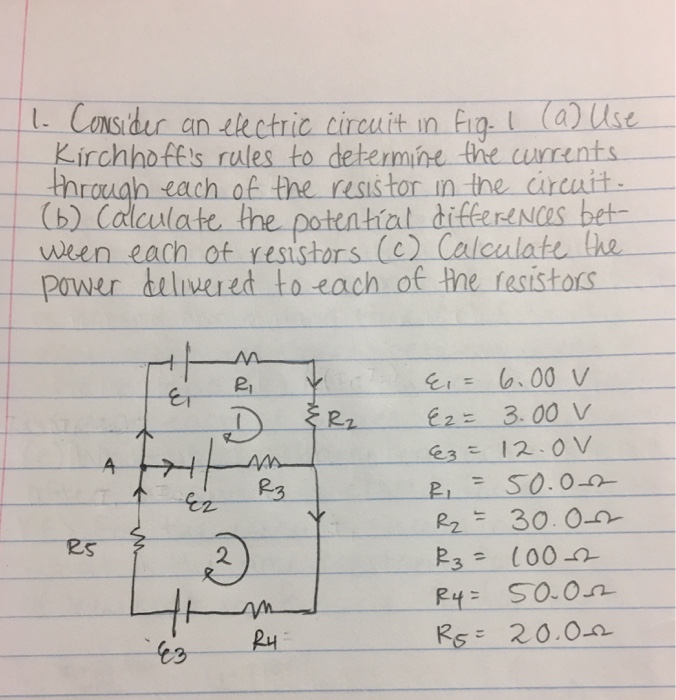 1. Consider an electric circuit in Fig. 1 (a) Use
Kirchhoff's rules to determine the currents
through each of the resistor in the circuit.
(b) Calculate the potential differences bet-
ween each of resistors (c) Calculate the
power delivered to each of the resistors
ε1 R1
1 R2
A
ε2 R3
R5
2
ε3 R4
ε1 = 6.00 V
ε2 = 3.00 V
ε3 = 12.0 V
R1 = 50.0 Ω
R2 = 30.0 Ω
R3 = 100 Ω
R4 = 50.0 Ω
R5 = 20.0 Ω